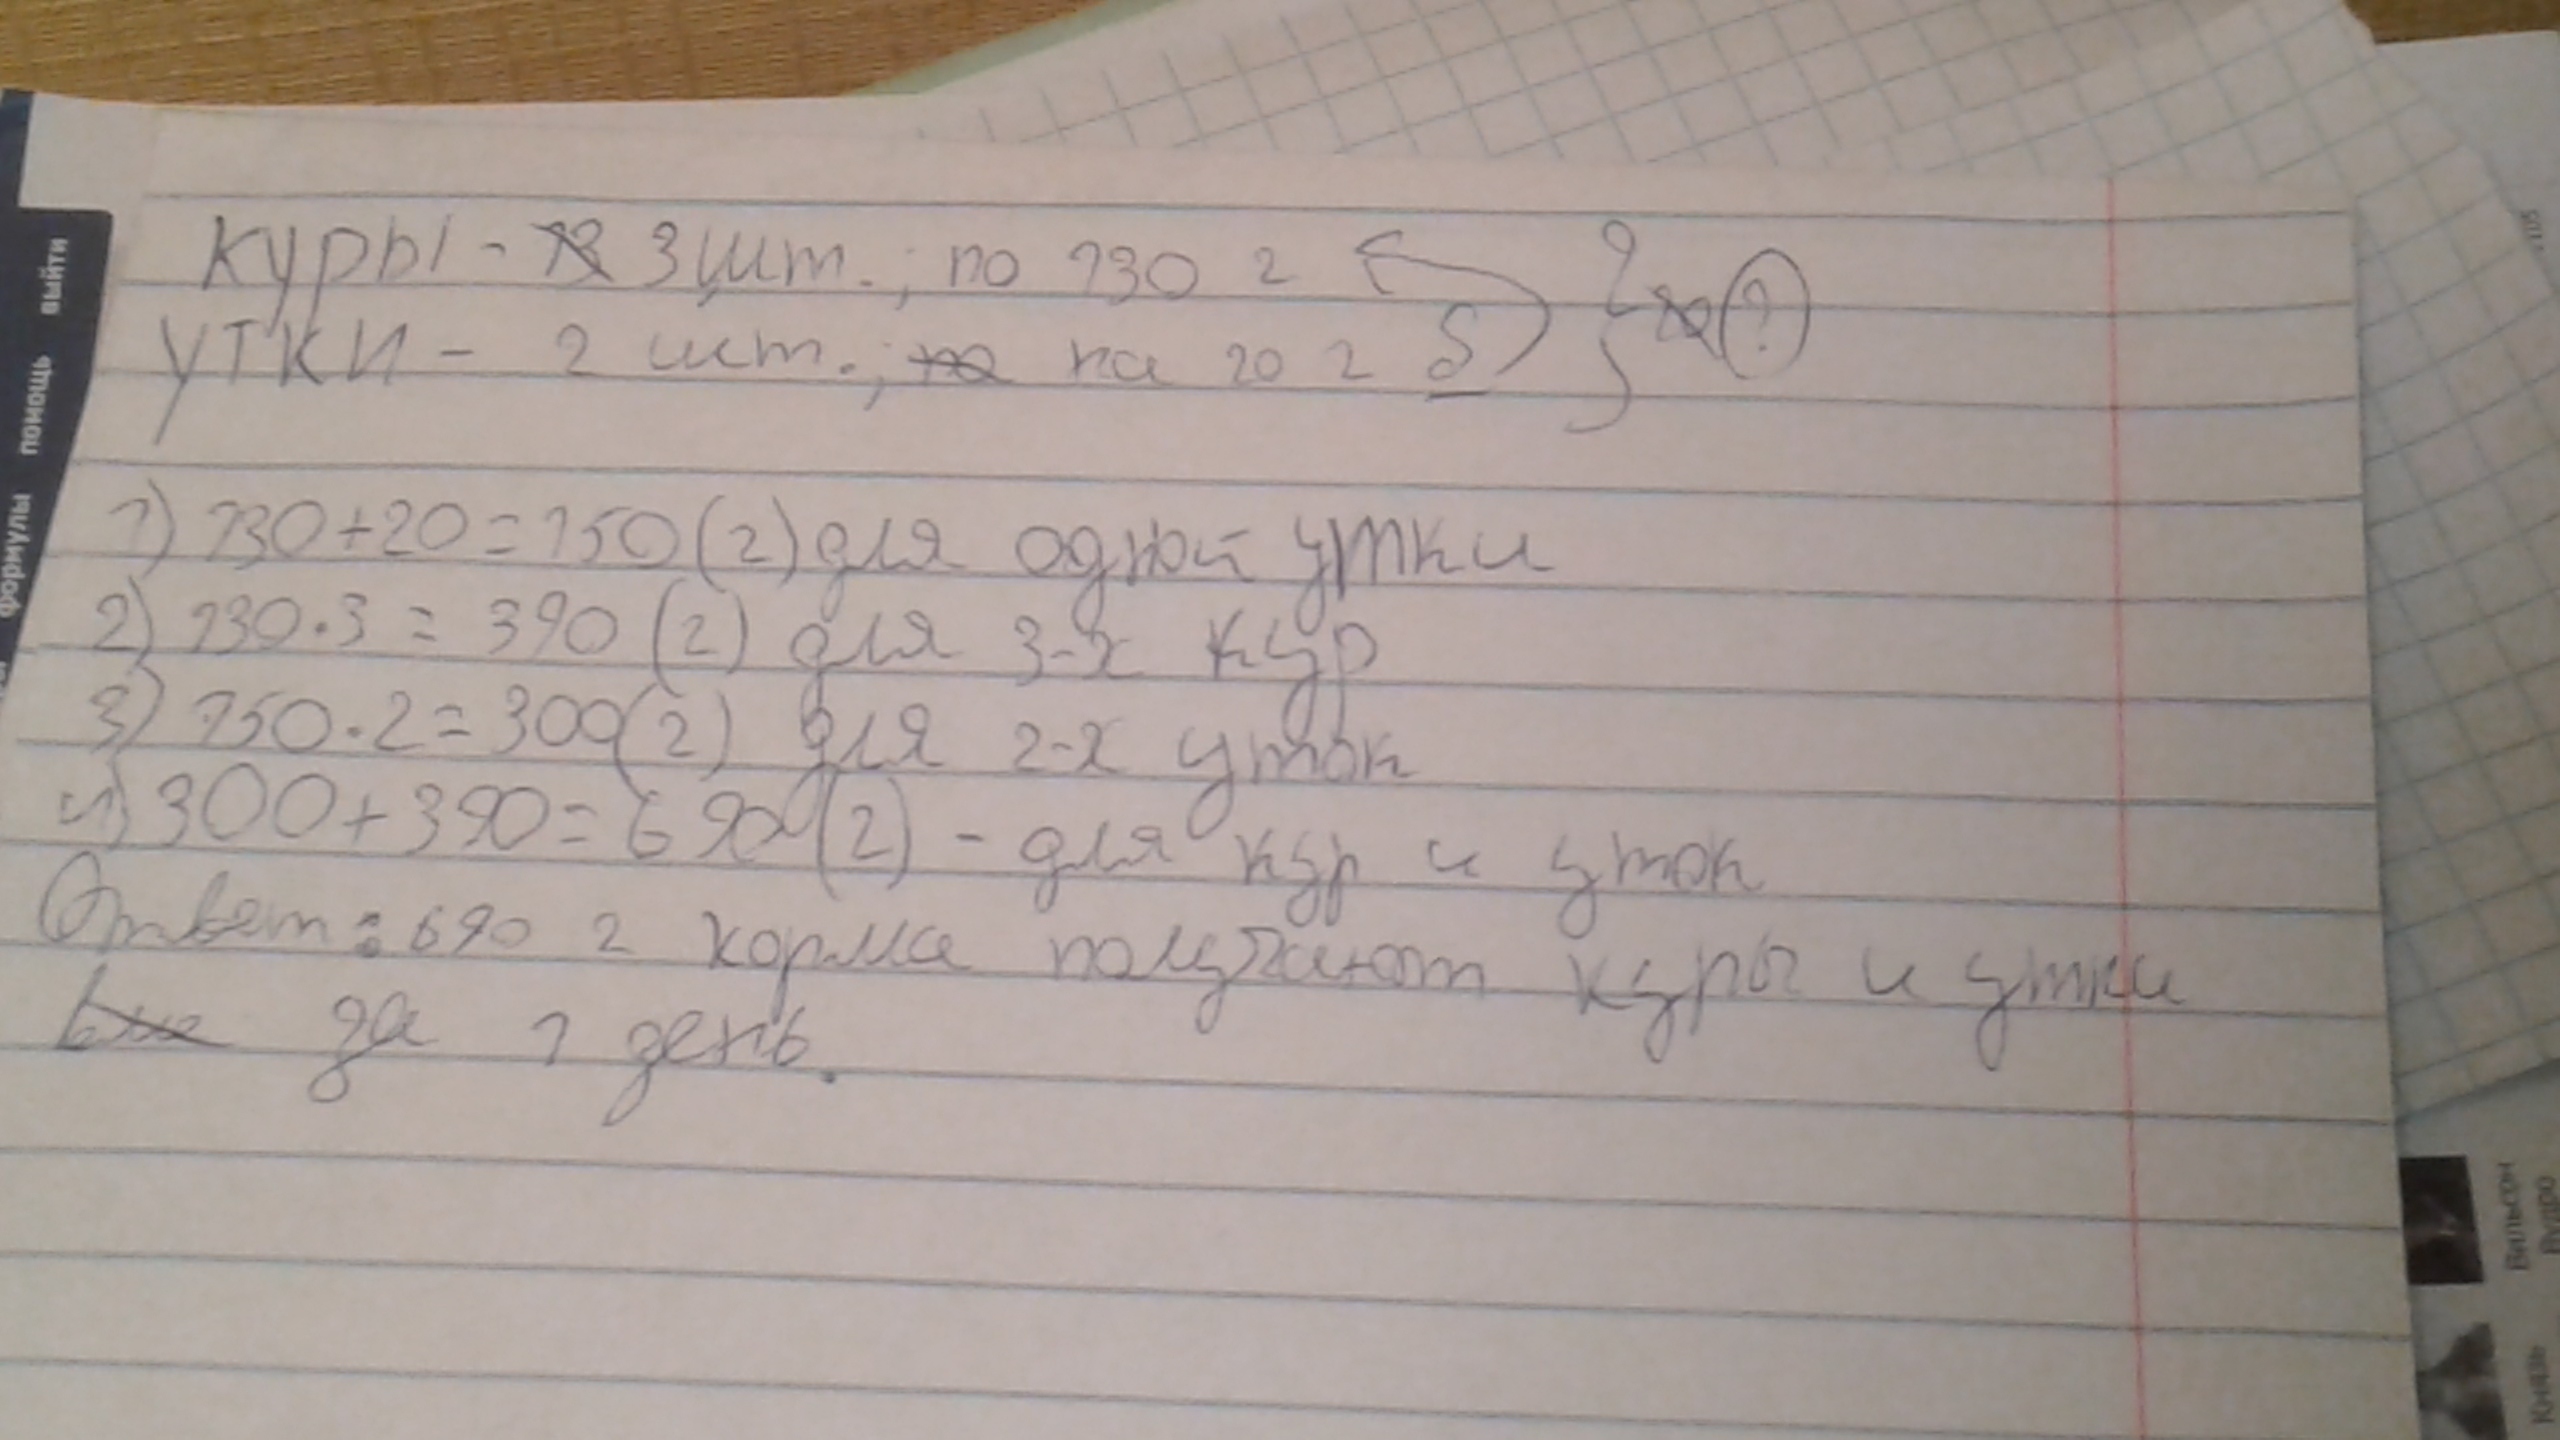 куры - 3 шт.; по 130 г
утки - 2 шт.; на 20 г б } ?
1) 130+20=150(г) для одной утки
2) 130·3 = 390 (г) для 3-х кур
3) 150·2=300(г) для 2-х уток
4) 300+390=690 (г) - для кур и уток
Ответ: 690 г корма получают куры и утки
за 1 день.
выйти
помощь
формулы
Вильсон
Вудро
Князь